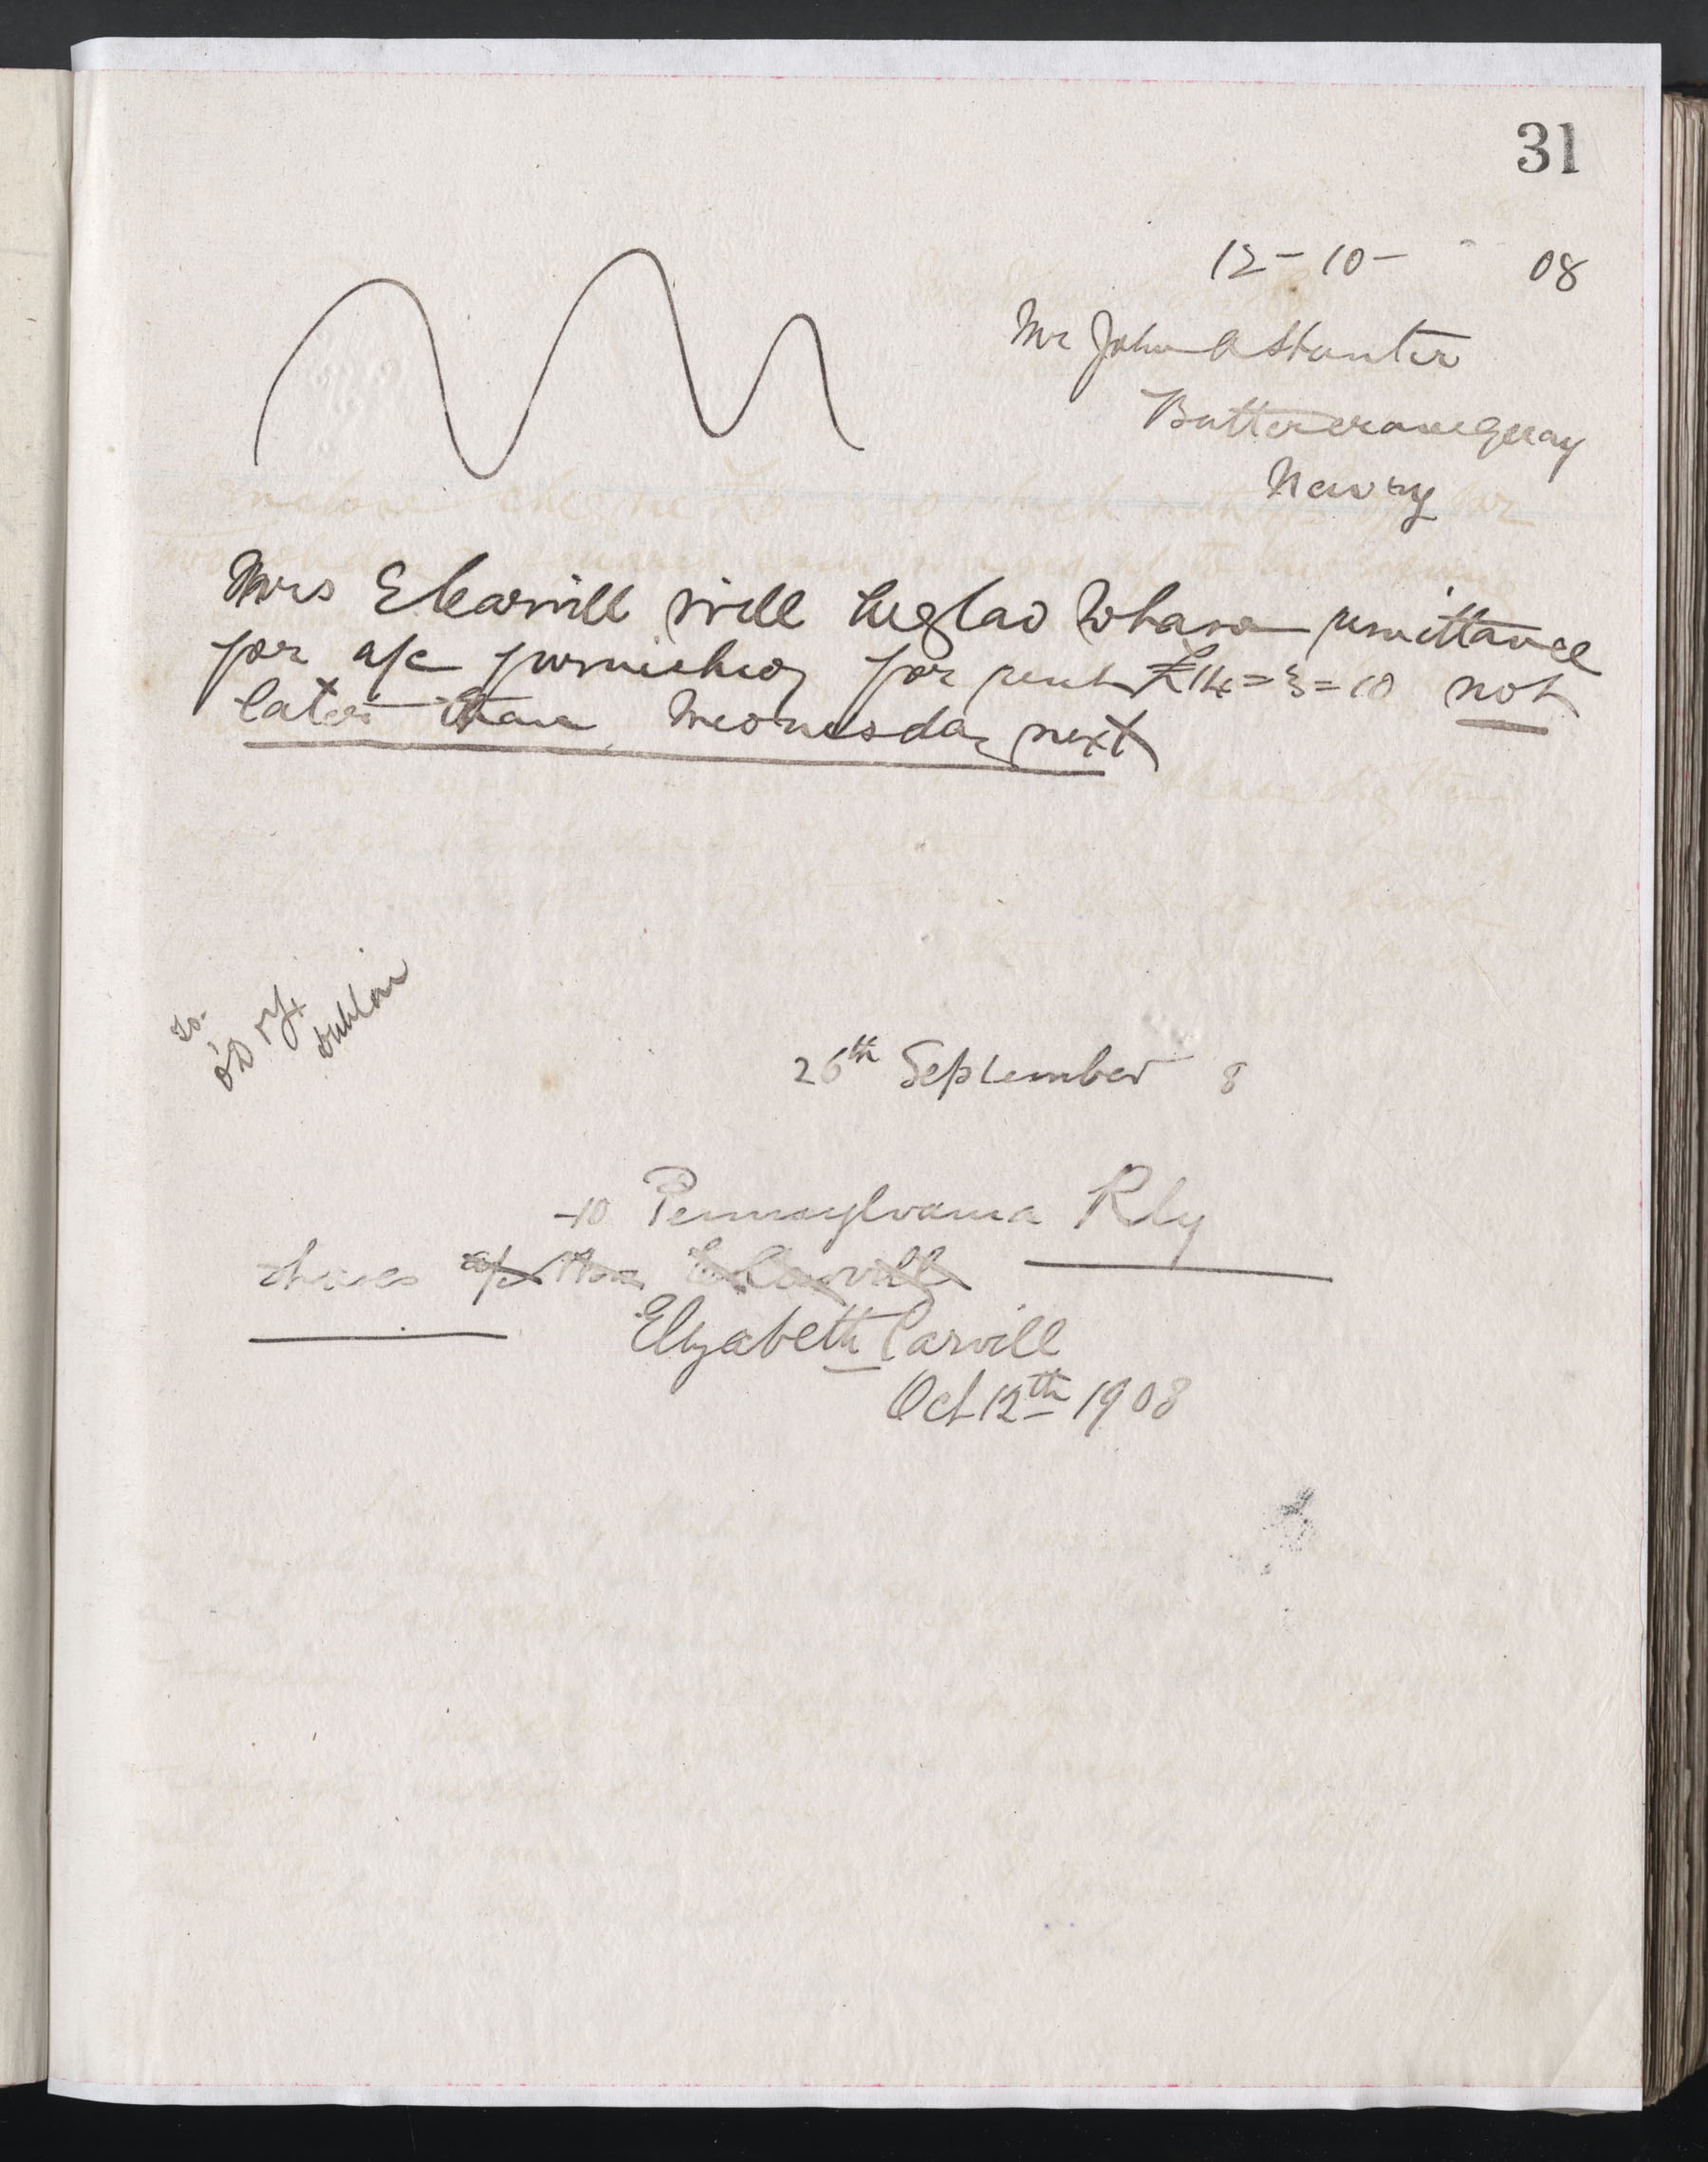 31
12-10- 08
Mr John A Hunter
Buttercrane Quay
Newry
Mrs E Carvill will be glad to have remittance
for a/c furnished for rent £14=3=10 not
later than Wednesday next
To.
Dublin
26th September 8
10 Pennsylvania Rly
shares a/c Mrs E Carvill
Elizabeth Carvill
Oct 12th 1908